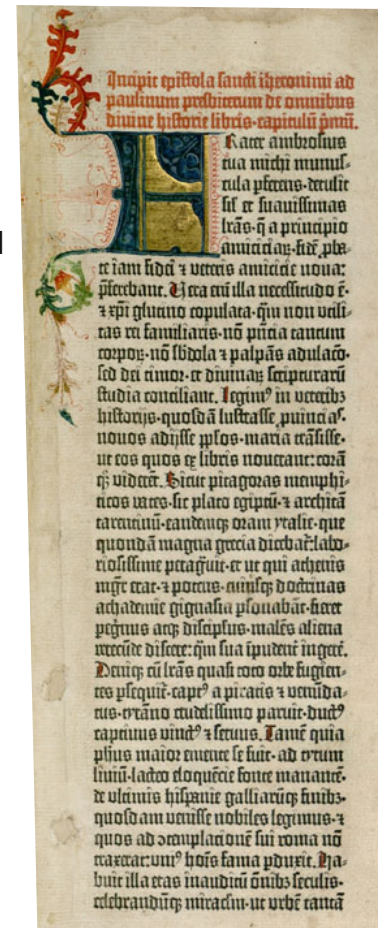 Incipit epistola sancti iheronimi ad
paulinum presbiterum de omnibus
divine historie libris · capitulū p̄mū.
Frater ambrosius
tua michi munus-
cula ꝑferens · detulit
sil̄ et suavissimas
lr̄as · q̄ a principio
amiciciaꝝ · fidē ꝓba-
te iam fidei ⁊ veteris amicicie nova:
p̄ferebant. Vera eni̅ illa necessitudo ē ·
⁊ xpi̅ glutino copulata · qm̄ non utili-
tas rei familiaris · nō pn̄cia tantum
corpoꝝ · nō sb̄dola ⁊ palpās adulacō ·
sed dei timor · et divinaꝝ scripturarū
studia conciliant. Legimꝰ in veteribꝫ
historijs · quosdā lustrasse ꝓvincias ·
novos adijsse ppl̄os · maria trāsisse ·
ut eos quos ex libris noverant: corā
qꝫ viderēt. Sicut pitagoras memphi-
ticos vates · sic plato egiptū · ⁊ architā
tarentinū · eandemqꝫ oram ytalie · que
quondā magna grecia dicebat̄: labo-
riosissime peragͣvit · et ut qui athenis
mgr̄ erat · ⁊ potens · cuiusqꝫ doctrinas
achademie gignasia ꝑsonabāt · fieret
peg̓nus atqꝫ discipl̄us · malēs aliena
verecūde discere: qm̄ sua īpudent̄ ingerē.
Deniqꝫ cū lr̄as quasi toto orbe fugien-
tes ꝑsequit̄ · captꝰ a piratis ⁊ venūda-
tus · tyrāno crudelissimo paruit · ductꝰ
captivus vinctꝰ ⁊ servus. Tamē quia
ph̄us maior emente se fuit · ad tytum
liviū · lacteo eloquēcie fonte manantē ·
de ultimis hispanie galliarūqꝫ finibꝫ ·
quosdam venisse nobiles legimus · ⁊
quos ad ꝯtemplacionē sui roma nō
traxerat: unꝰ hoīs fama ꝑduxit. Ha-
buit illa etas inauditū om̄ibꝫ seculis ·
celebrandūqꝫ miracl̄m · ut urbē tantā